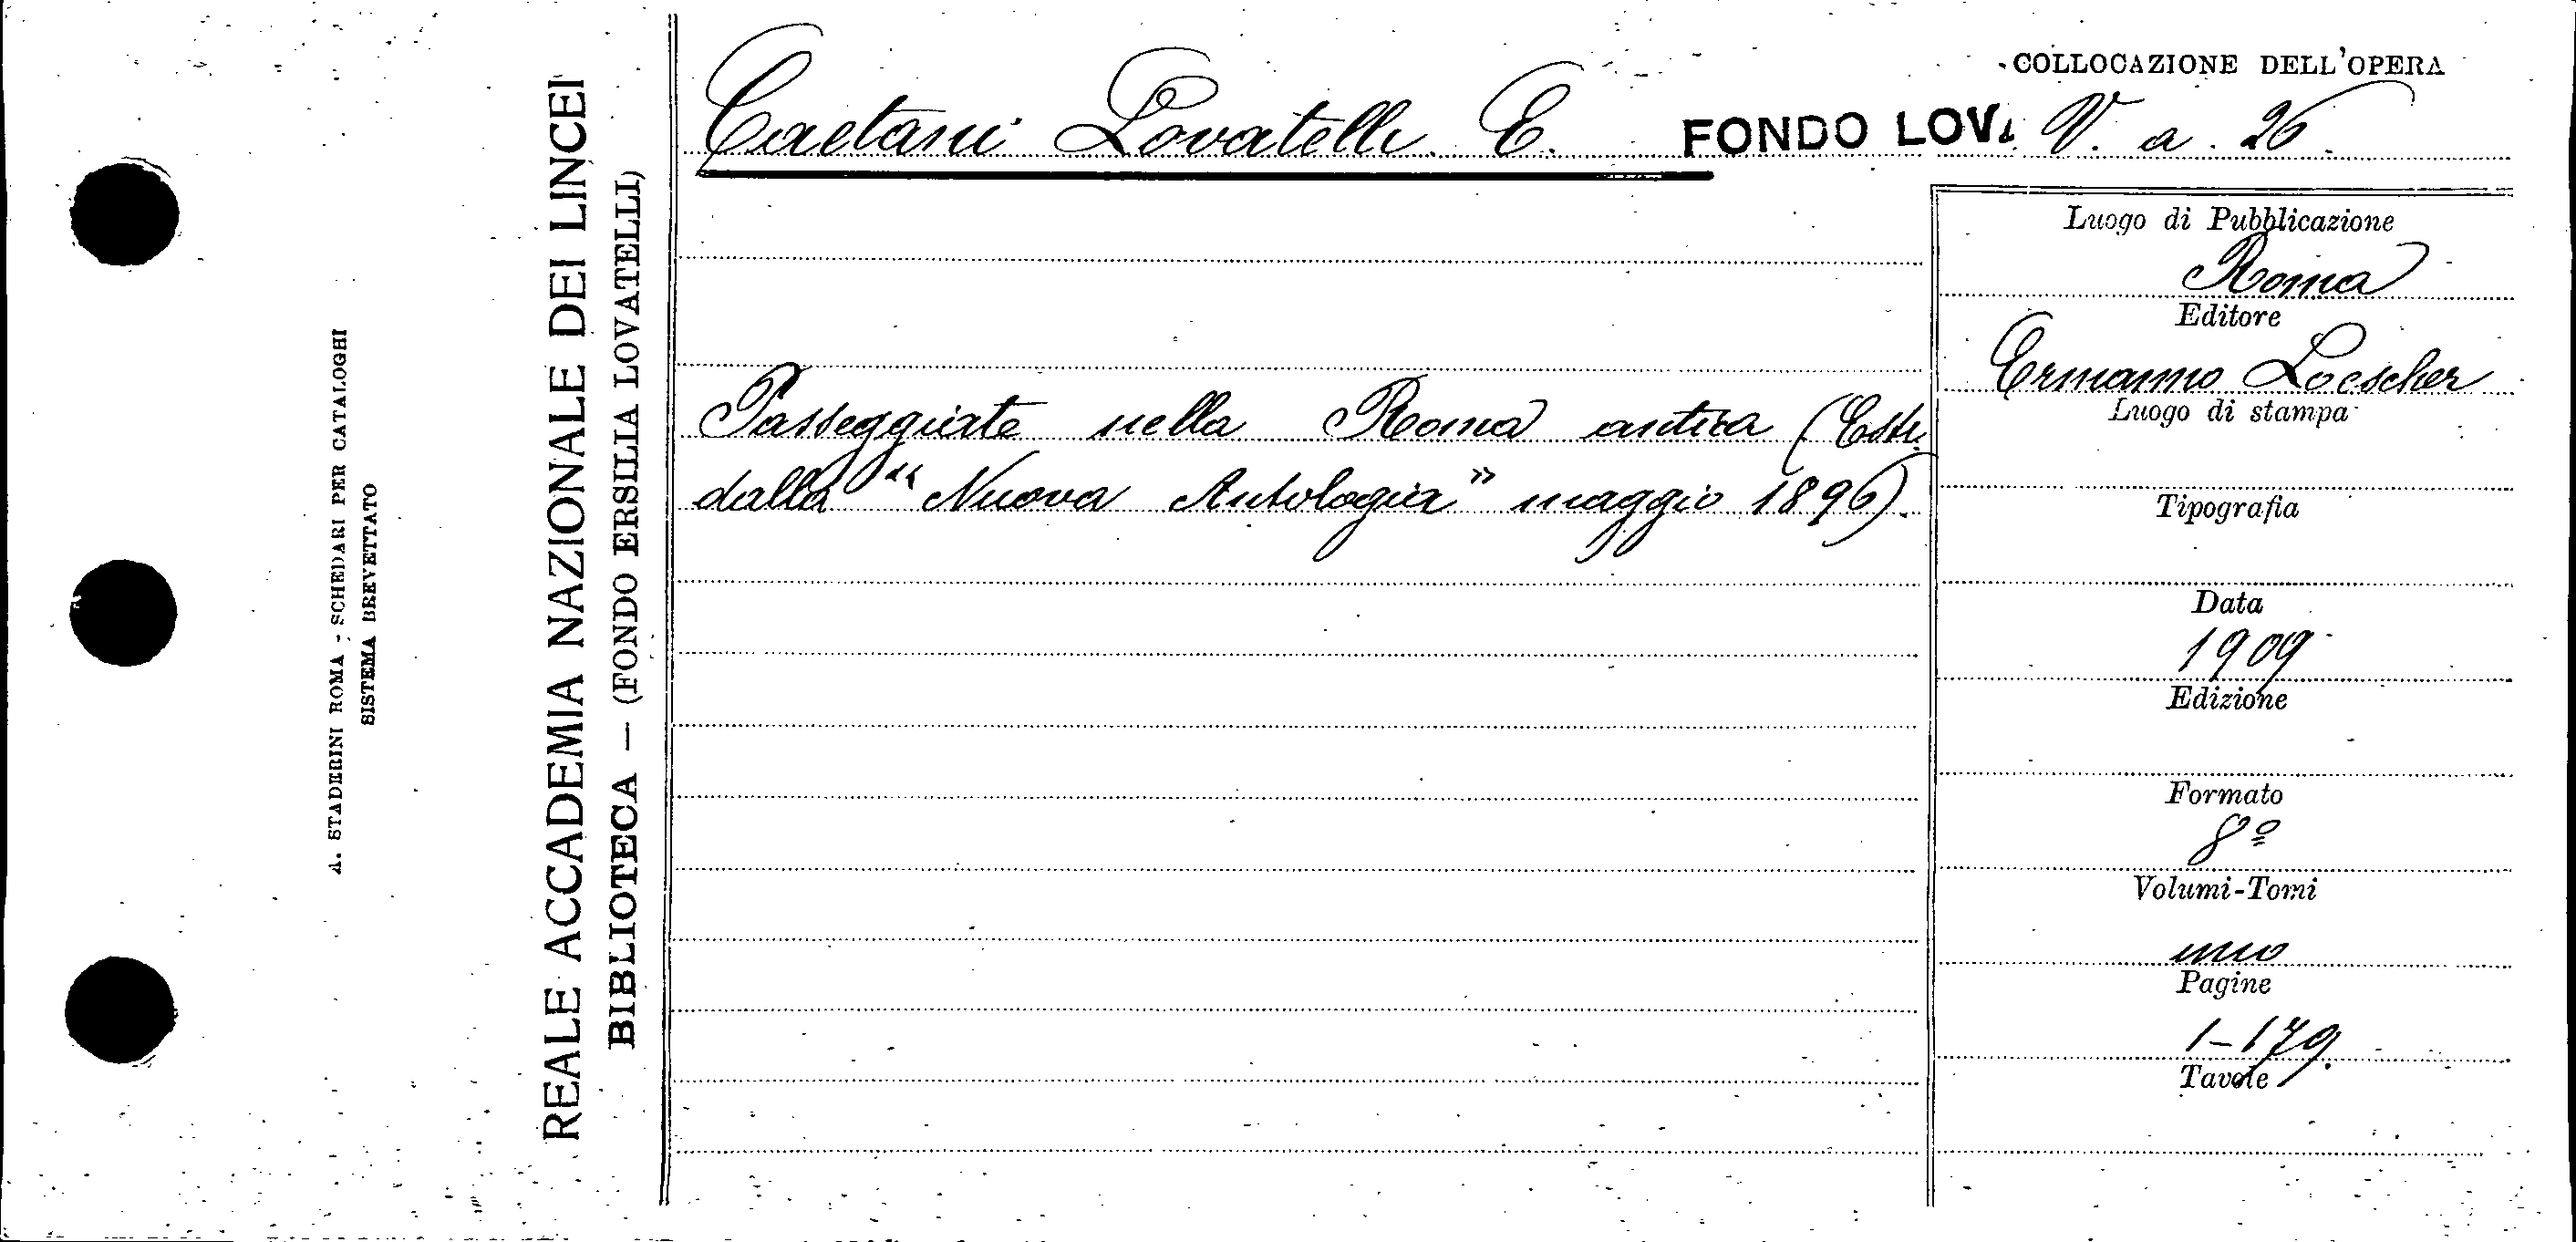 A. STADERINI ROMA - SCHEDARI PER CATALOGHI
SISTEMA BREVETTATO
REALE ACCADEMIA NAZIONALE DEI LINCEI
BIBLIOTECA — (FONDO ERSILIA LOVATELLI)
Caetani Lovatelli E.
COLLOCAZIONE DELL'OPERA
FONDO LOV. V. a. 26.
Passeggiate nella Roma antica (Estr.
dalla "Nuova Antologia" maggio 1896).
Luogo di Pubblicazione
Roma
Editore
Ermanno Loescher
Luogo di stampa
Tipografia
Data
1909
Edizione
Formato
8º
Volumi-Tomi
uno
Pagine
1-179.
Tavole